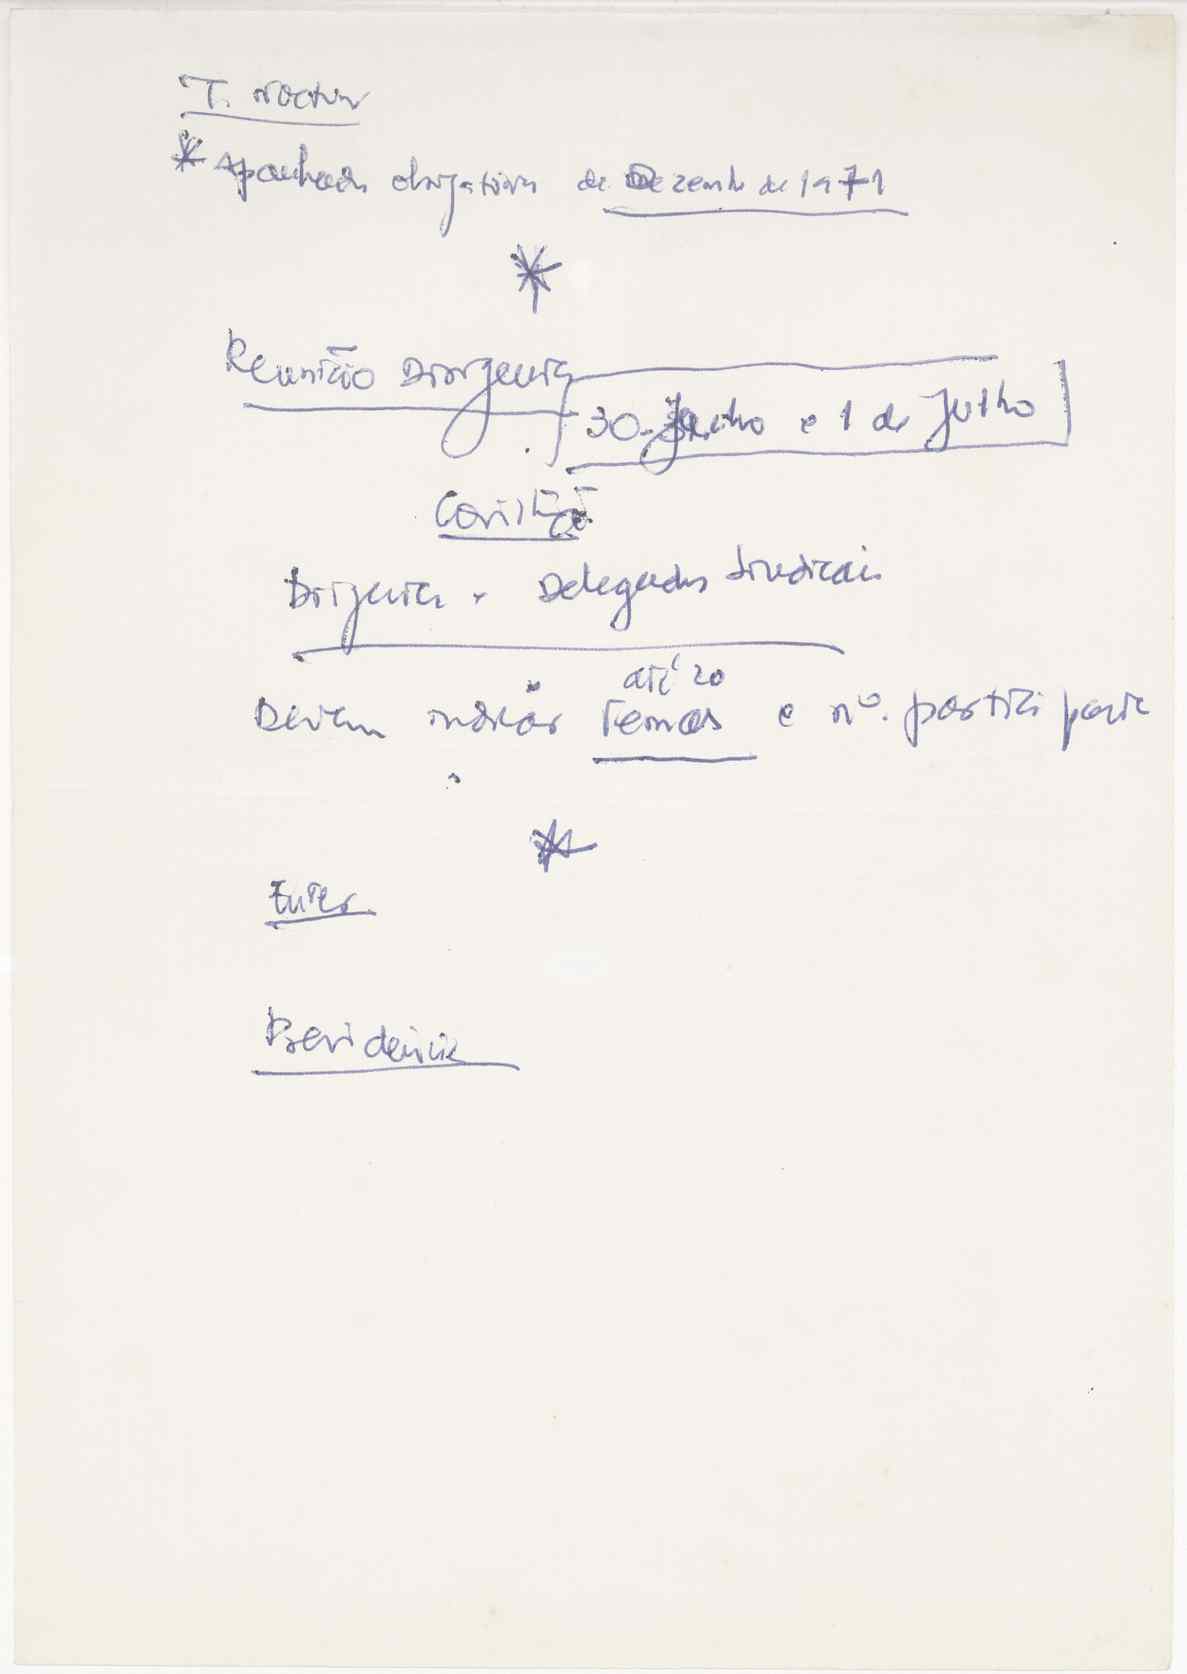 T. Noctur
* Apanhado obrigatório de Dezemb de 1971
*
Reunião Dirigentes
30-Junho e 1 de Julho
Covilhã
Dirigentes e Delegados Sindicais
até 20
Devem indicar Temas e nº. participante
*
Previdência